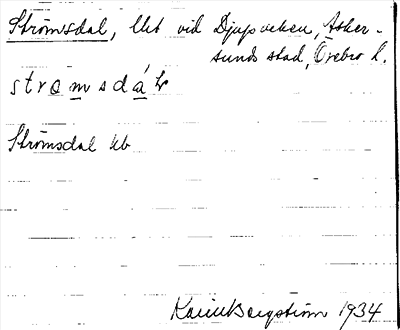 Strömsdal, lht vid Djupviken, Asker-
sunds stad, Örebro l.
strømsdál
Strömsdal kb
Karin Bergström 1934